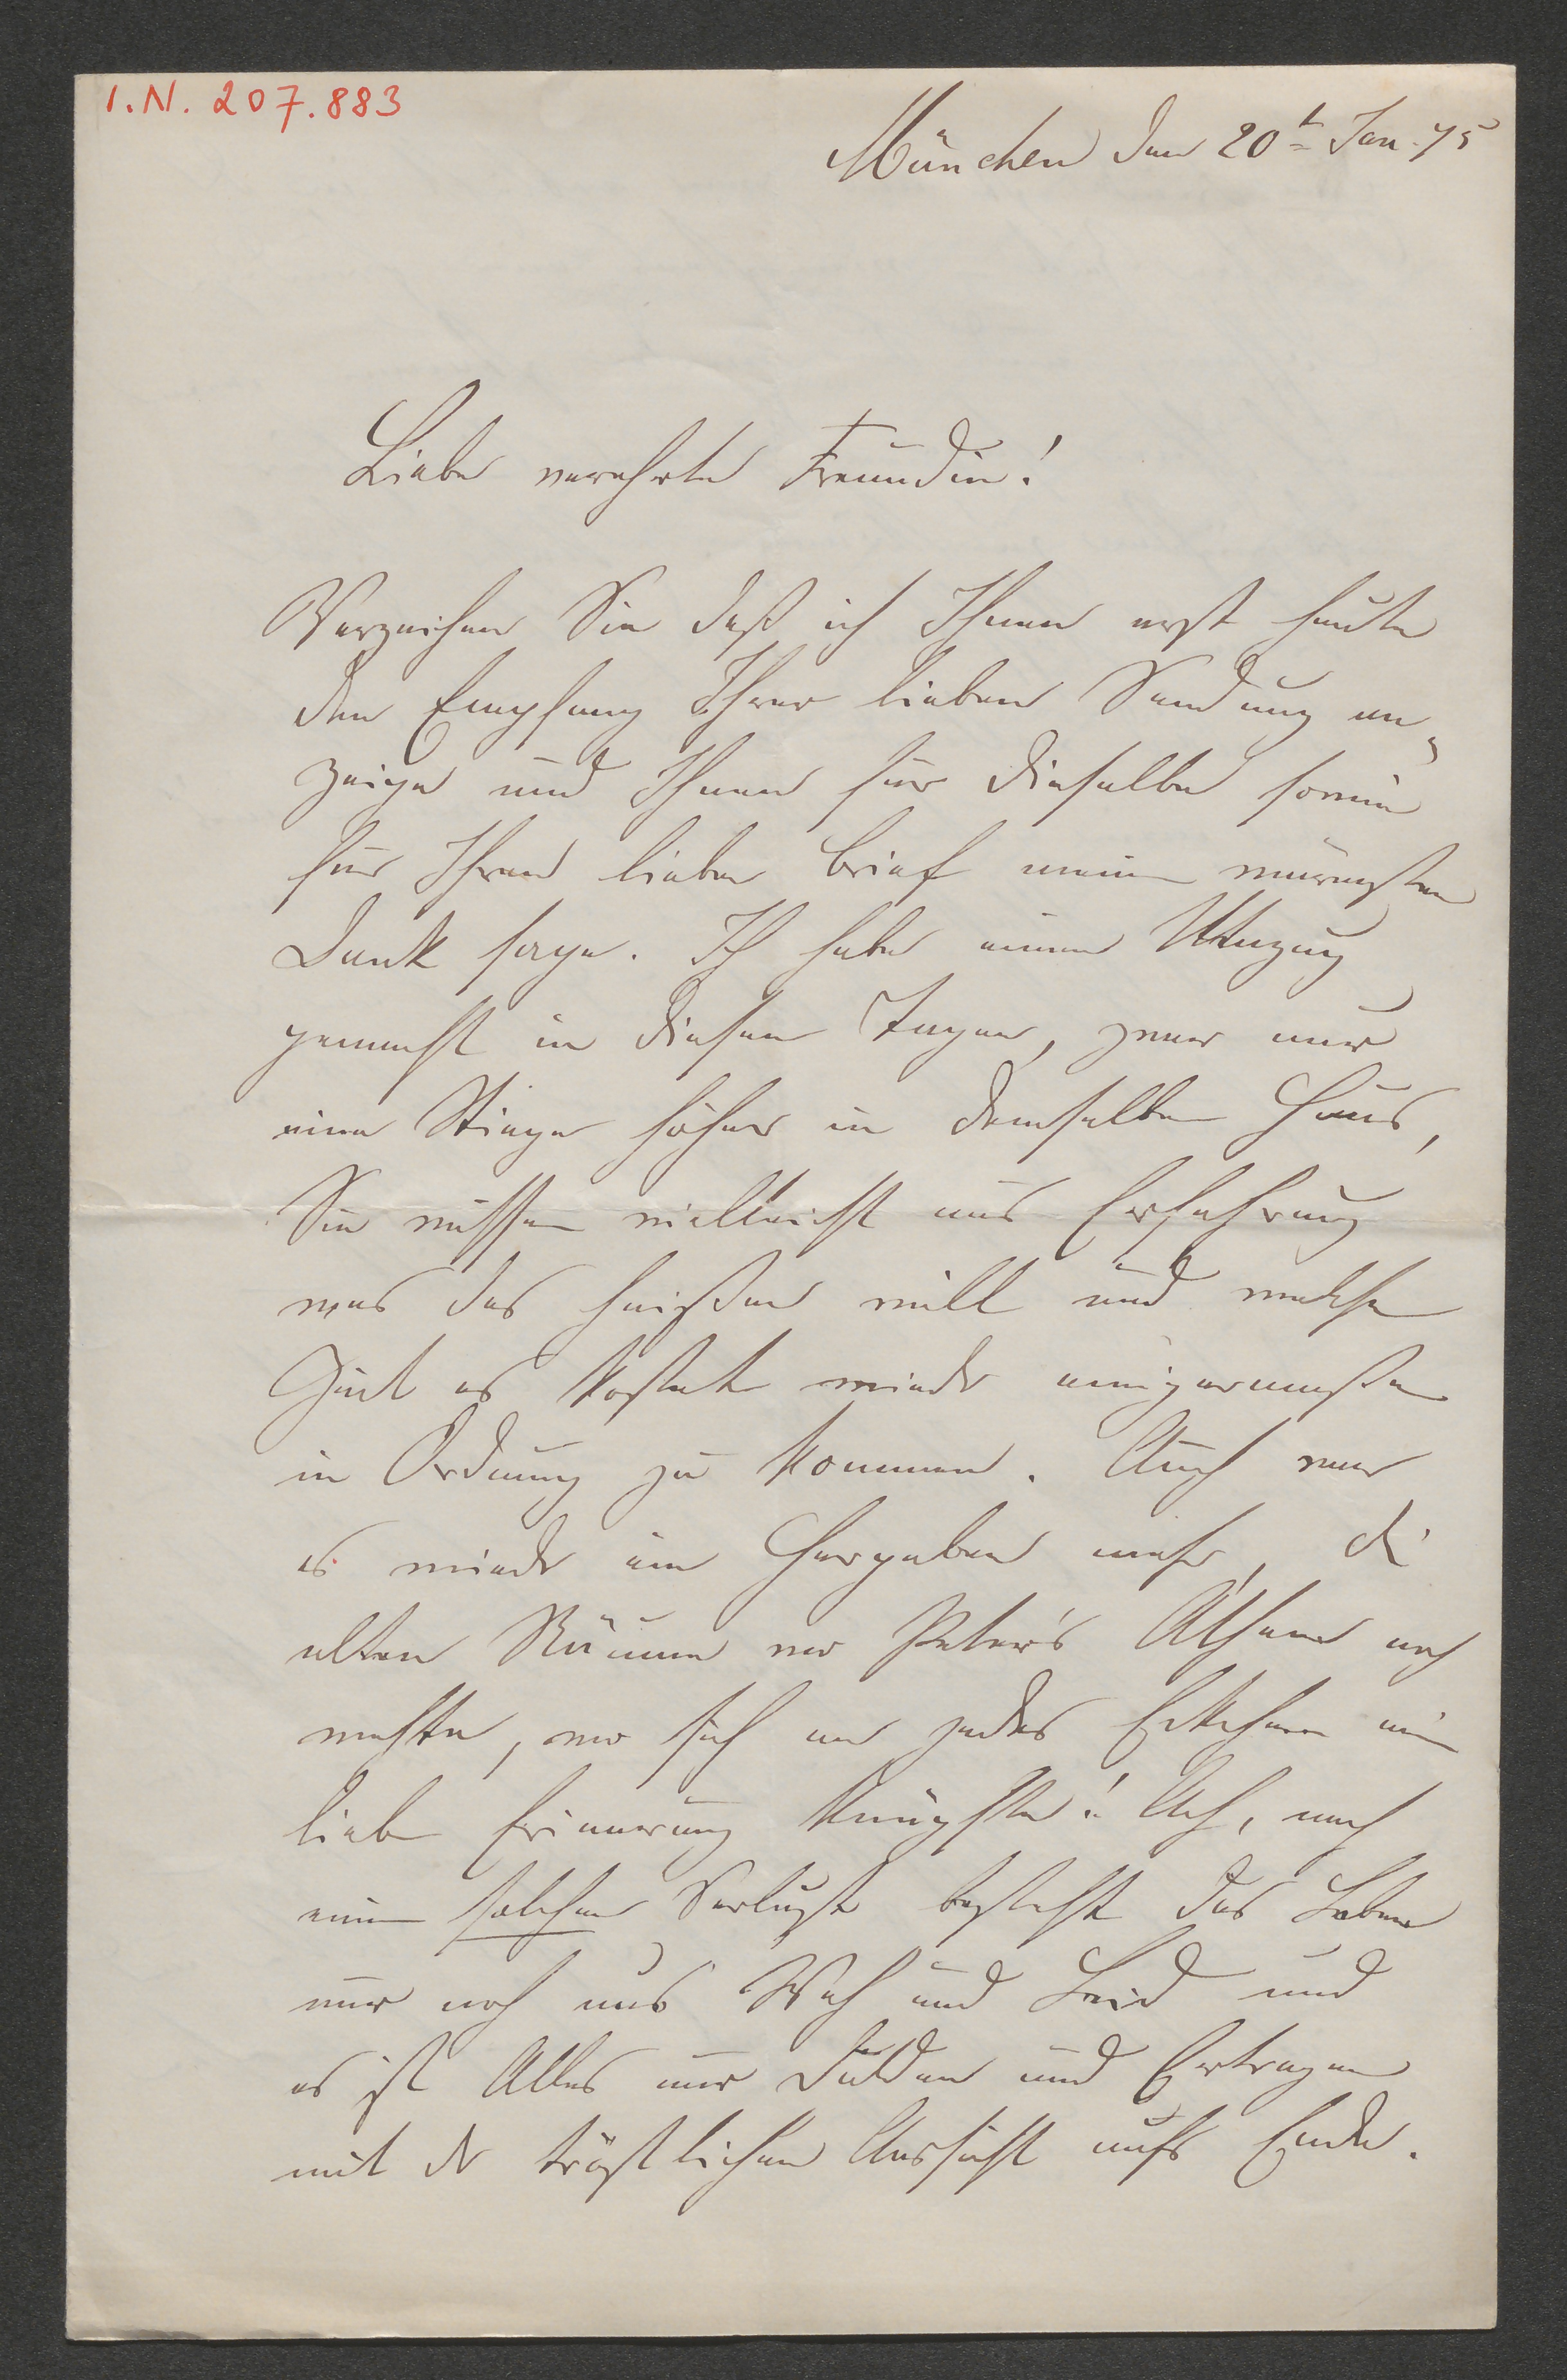 I.N. 207.883
München den 20t Jan. 75
Liebe verehrte Freundin!
Verzeihen Sie daß ich Ihnen erst heute
den Empfang Ihrer lieben Sendung an¬
zeige und Ihnen für dieselbe sowie
für Ihren lieben Brief meinen wärmsten
Dank sage. Ich habe einen Umzug
gemacht in diesen Tagen, zwar nur
eine Stiege höher in demselben Haus,
Sie wissen vielleicht aus Erfahrung
was das heißen will und welche
Zeit es kostet wieder einigermaßen
in Ordnung zu kommen. Auch war
es wieder ein Hergeben mehr, die
alten Räume wo Peter's Athem noch
wehte, wo sich an jedes Eckchen eine
liebe Erinnerung knüpfte! Ach, nach
einem solchen Verlust besteht das Leben
nur noch aus Weh und Leid und
es ist Alles nur Dulden und Ertragen
mit der tröstlichen Aussicht aufs Ende.